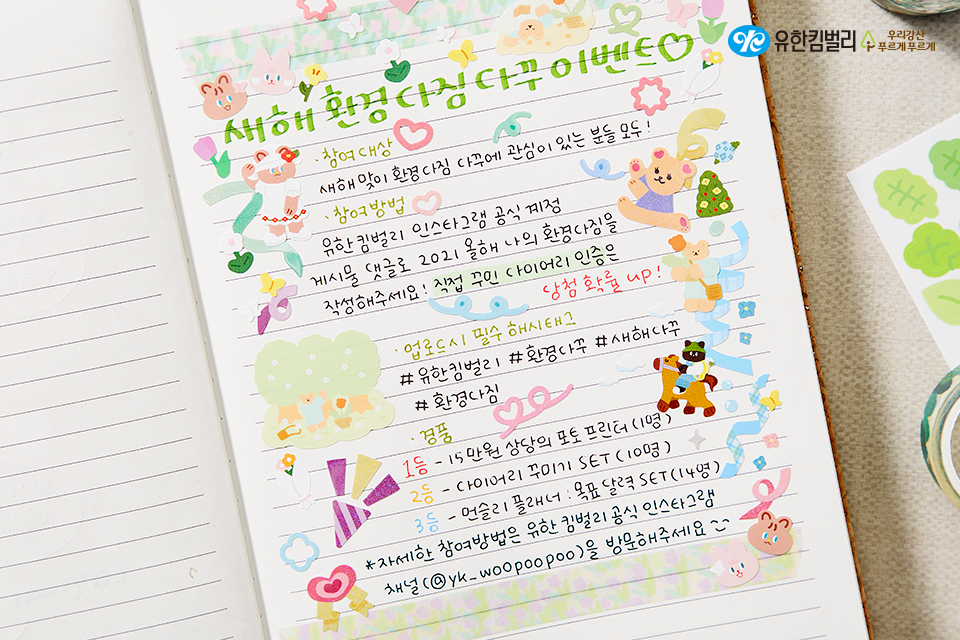 유한킴벌리
우리강산
푸르게푸르게
새해 환경 다짐 다꾸 이벤트♡
· 참여 대상
새해 맞이 환경다짐 다꾸에 관심이 있는 분들 모두!
· 참여방법
유한킴벌리 인스타그램 공식 계정
게시물 댓글로 2021 올해 나의 환경다짐을
작성해주세요! 직접 꾸민 다이어리 인증은
당첨 확률 up!
· 업로드시 필수 해시태그
#유한킴벌리 #환경다꾸 #새해다꾸
#환경다짐
· 경품
1등 - 15만원 상당의 포토 프린터 (1명)
2등 - 다이어리 꾸미기 SET (10명)
3등 - 먼슬리 플래너 : 목표 달력 SET (14명)
*자세한 참여방법은 유한 킴벌리 공식 인스타그램
채널 (@yk_woopoopoo)을 방문해주세요